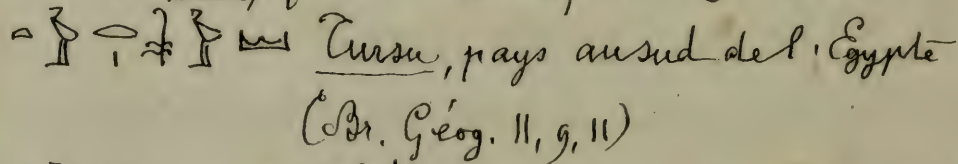 Tursu, pays au sud de l'Égypte
(Br. Géog. II, 9, 11)